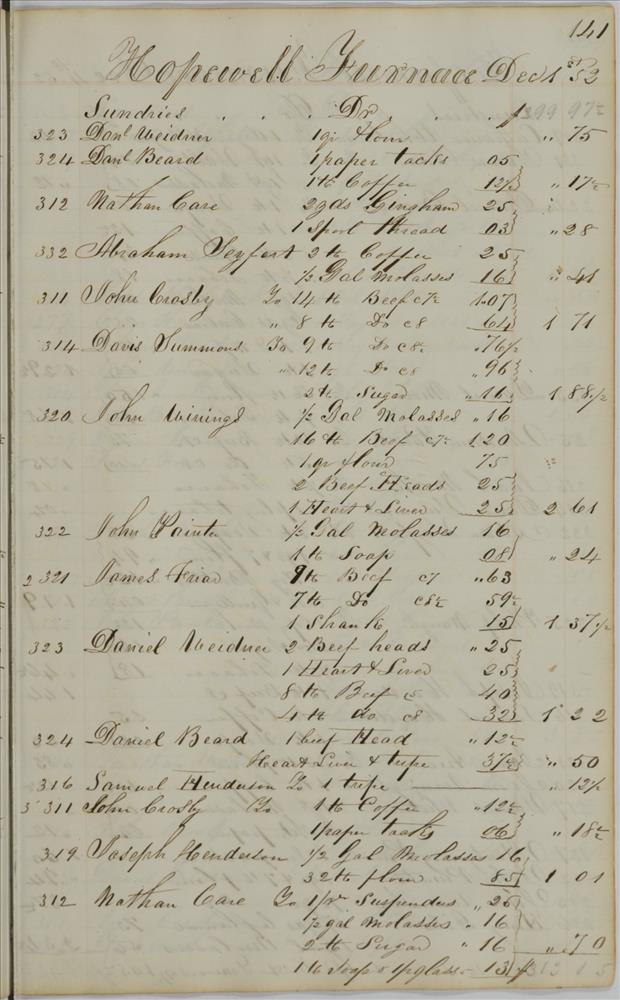 141
Hopewell Furnace Dec 1st 53
Sundries . . . Dr . . . $399 97½
323 Danl Weidner 1 qr flour " 75
324 Danl Beard 1 paper tacks 05
1 lb Coffee 12½ " 17½
312 Nathan Care 2 yds Gingham 25
1 Spool thread 03 " 28
332 Abraham Seyfert 2 lb Coffee 25
½ Gal Molasses 16 " 41
311 John Crosby To 14 lb Beef c7½ 1.07
" 8 lb Do c8 64 1 71
314 Davis Summons To 9 lb Do c8½ " 76½
" 12 lb Do c8 " 96
2 lb Sugar " 16 1 88½
320 John Winings ½ Gal Molasses " 16
16 lb Beef c7½ 1.20
1 qr flour 75
2 Beef Heads 25
1 Heart & Liver 25 2 61
322 John Painter ½ Gal Molasses 16
1 lb Soap 08 " 24
2 321 James Friad 9 lb Beef c7 " 63
7 lb Do c8½ 59½
1 Shank 15 1 37½
323 Daniel Weidner 2 Beef heads " 25
1 Heart & Liver 25
8 lb Beef c5 40
4 lb do c8 32 1 22
324 Daniel Beard 1 beef Head " 12½
Heart Liver & tripe 37½ " 50
316 Samuel Henderson To 1 tripe " 12½
311 John Crosby To 1 lb Coffee " 12½
1 paper tacks 06 " 18½
319 Joseph Henderson ½ Gal Molasses 16
32 lb flour 85 1 01
312 Nathan Care To 1 pr Suspendus " 25
½ gal Molasses " 16
2 lb Sugar " 16 " 70
1 lb Soap & 1 pglass 13 $